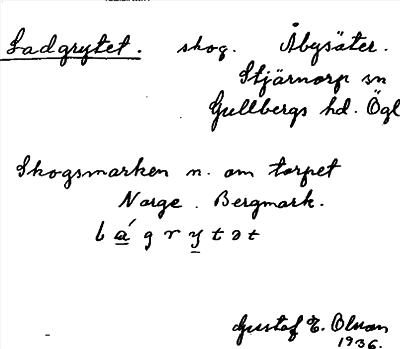 Ladgrytet. skog. Åbysäter.
Stjärnorp sn
Gullbergs hd. Ögl
Skogsmarken n. om torpet
Norge. Bergmark.
Gustaf E. Olson
1936.